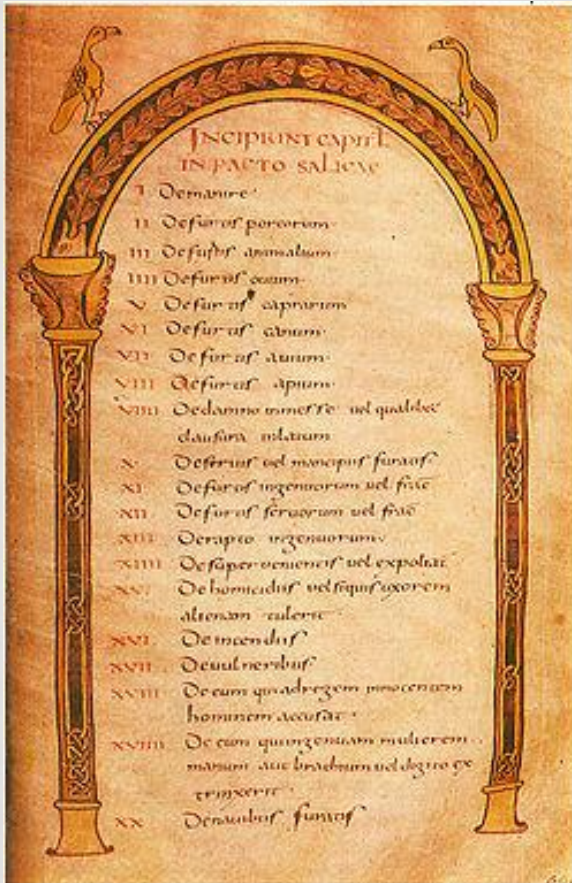 INCIPIUNT CAPITL
IN PACTO SALICAE
I De manire
II De furtis porcorum
III De furtis animalium
IIII De furtis ovium
V De furtis caprarum
VI De furtis canum
VII De furtis avium
VIII De furtis apium
VIIII De damno in messe vel qualibet
clausura inlatum
X De servis vel mancipiis furatis
XI De furtis ingenuorum vel frac
XII De furtis servorum vel frac
XIII De rapto ingenuorum
XIIII De superventis vel expoliat
XV De homicidiis vel si quis uxorem
alienam tulerit
XVI De incendiis
XVII De vulneribus
XVIII De eum qui ad regem innocentem
hominem accusat
XVIIII De eum qui ingenuam mulierem
manum aut brachium vel digito ex
trinxerit
XX De navibus furatis